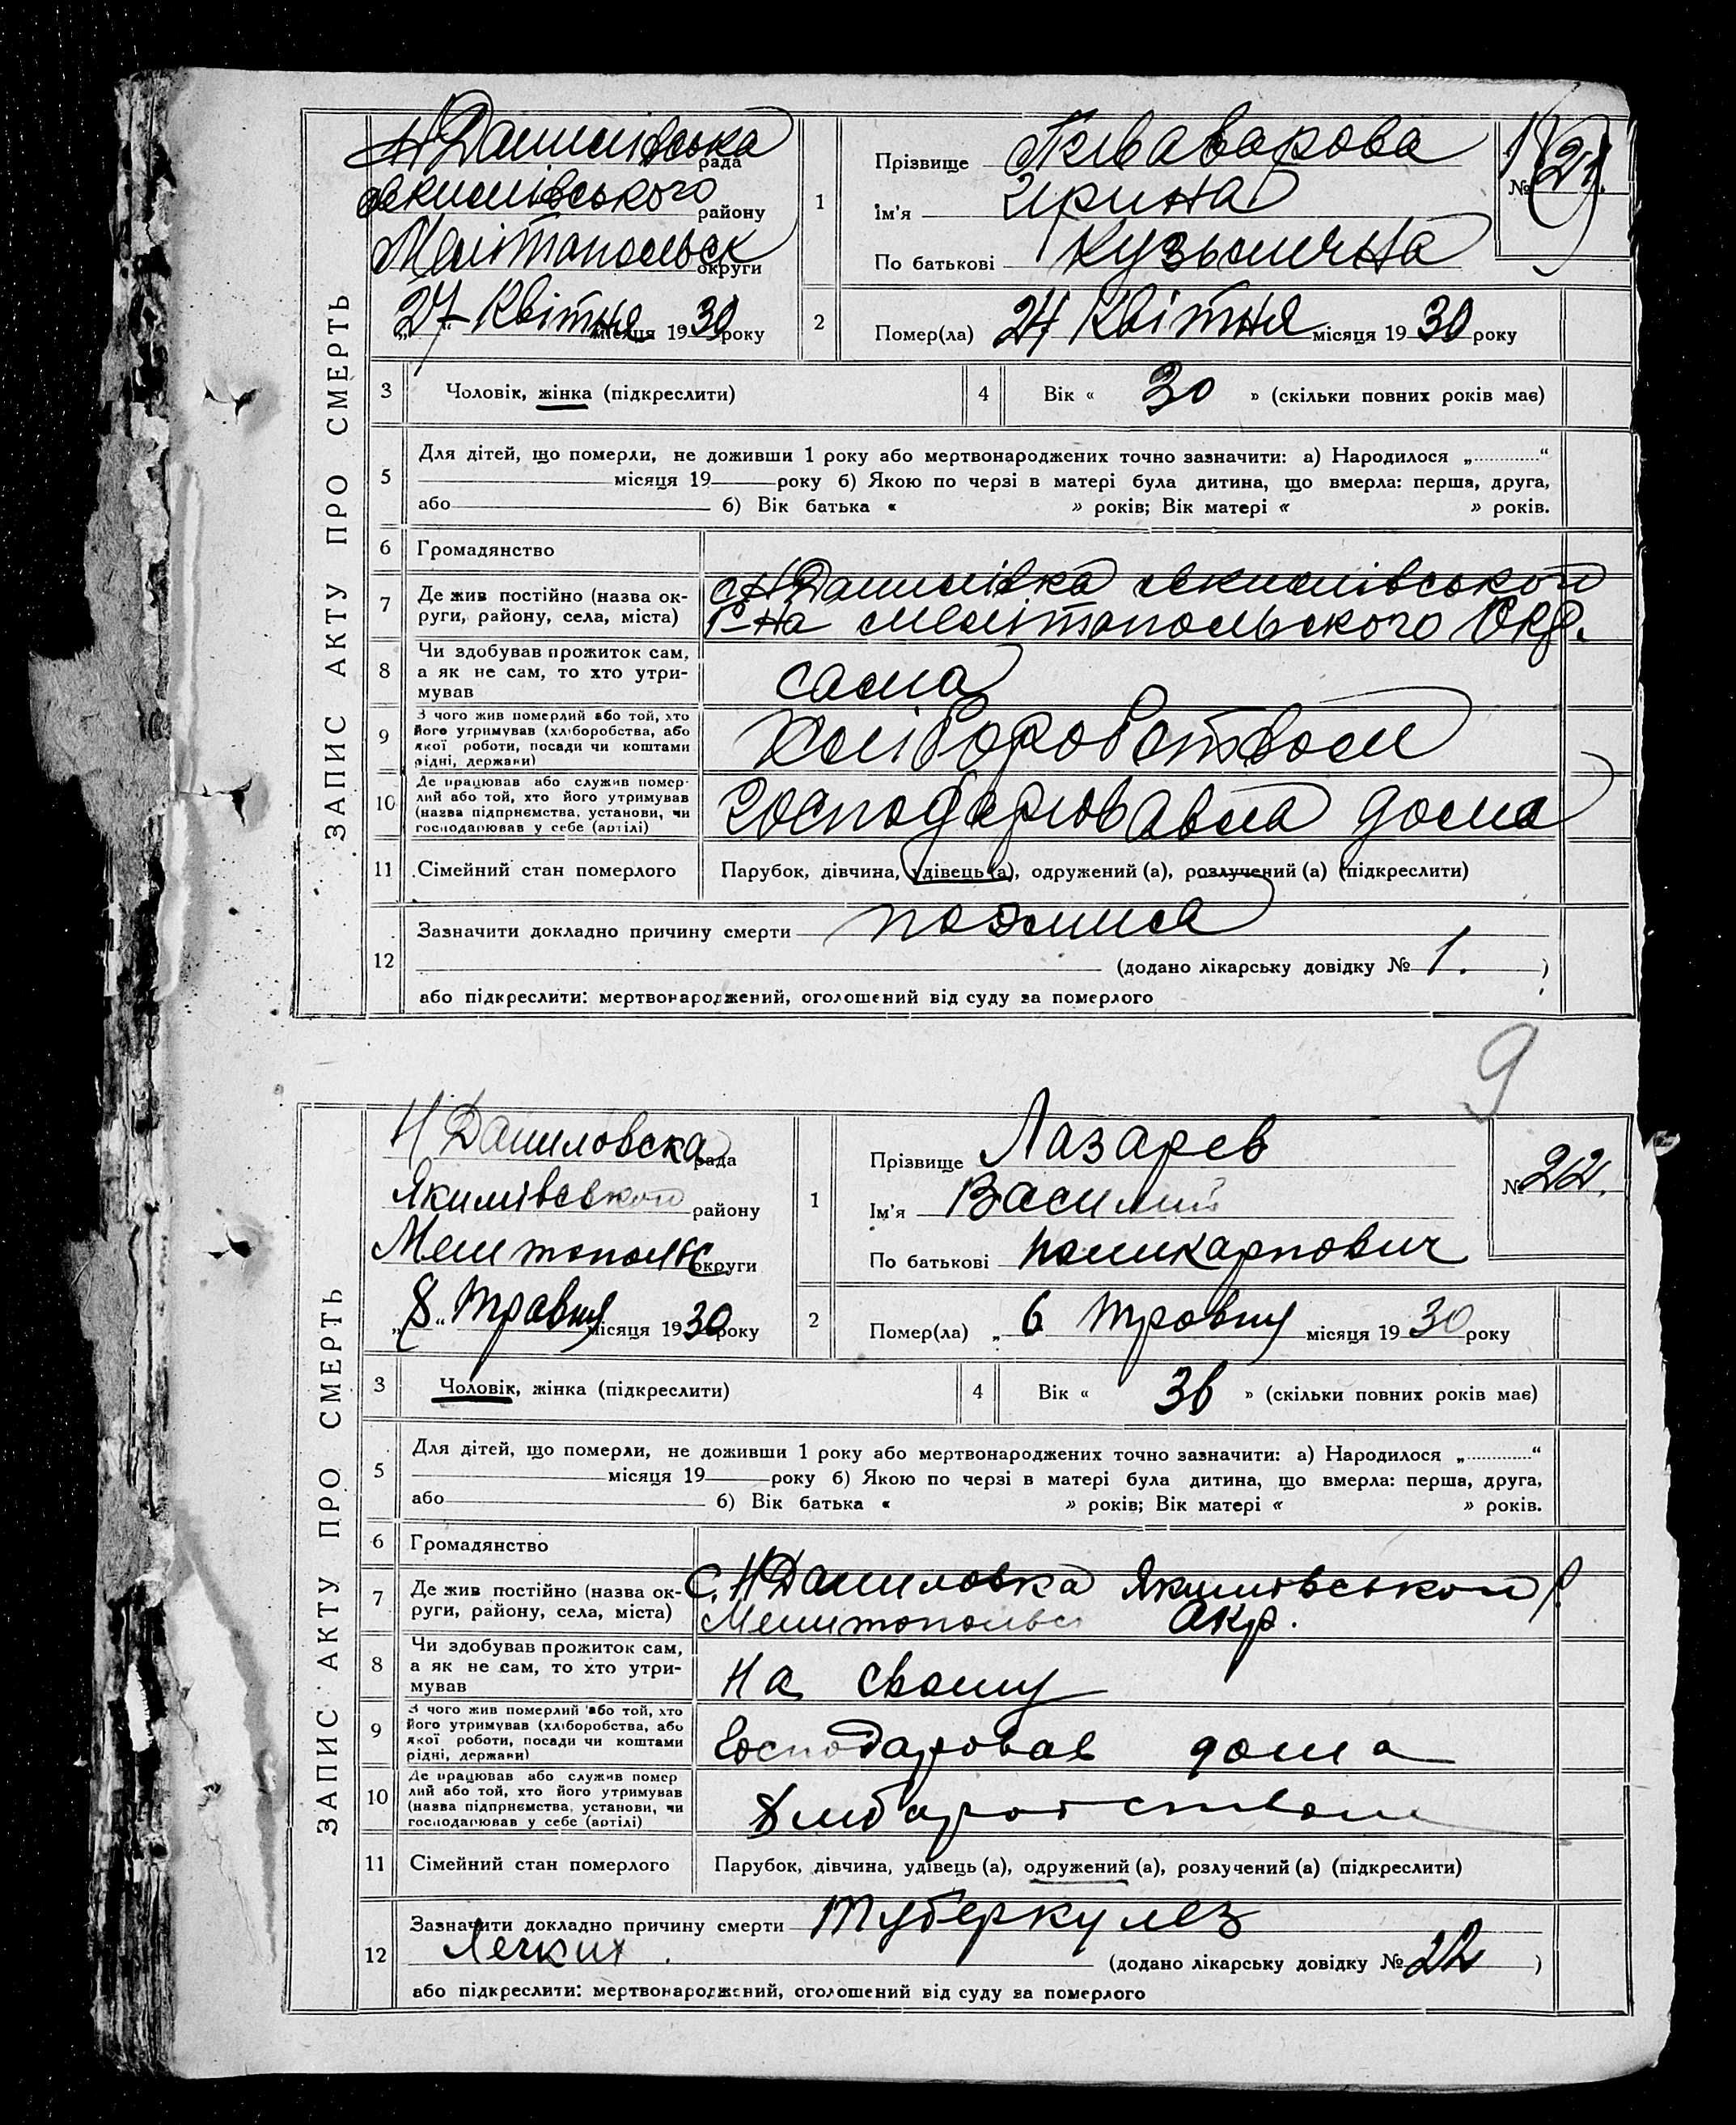 ЗАПИС АКТУ ПРО СМЕРТЬ
Н Данилівська рада
Якимівського району
Мелітопольськ округи
„27“ Квітня місяця 1930 року
1
Прізвище
Ім'я Ирина
По батькові Кузьмична
№ 21.
2
Помер(ла) 24 Квітня місяця 1930 року
3 Чоловік, жінка (підкреслити)
4 Вік « 30 » (скільки повних років має)
5 Для дітей, що померли, не доживши 1 року або мертвонароджених точно зазначити: а) Народилося „ “
місяця 19 року б) Якою по черзі в матері була дитина, що вмерла: перша, друга,
або б) Вік батька « » років; Вік матері « » років.
6 Громадянство
7 Де жив постійно (назва ок-
руги, району, села, міста)
с Н Данилівка Якимівського
р-на Мелітопольського Окр.
8 Чи здобував прожиток сам,
а як не сам, то хто утри-
мував
сама
9 З чого жив померлий або той, хто
його утримував (хліборобства, або
якої роботи, посади чи коштами
рідні, держави)
Хліборобством
10 Де працював або служив помер-
лий або той, хто його утримував
(назва підприємства, установи, чи
господарював у себе (артілі)
Господарювавла дома
11 Сімейний стан померлого
Парубок, дівчина, удівець (а), одружений (а), розлучений (а) (підкреслити)
12 Зазначити докладно причину смерти
(додано лікарську довідку № 1. )
або підкреслити: мертвонароджений, оголошений від суду за померлого
9
ЗАПИС АКТУ ПРО СМЕРТЬ
Н Даниловска рада
Якимівського району
Мелитопольс округи
„8“ Травня місяця 1930 року
1
Прізвище Лазарев
Ім'я Василий
По батькові Поликарпович
№ 22.
2
Помер(ла) „ 6 Травня місяця 1930 року
3 Чоловік, жінка (підкреслити)
4 Вік « 36 » (скільки повних років має)
5 Для дітей, що померли, не доживши 1 року або мертвонароджених точно зазначити: а) Народилося „ “
місяця 19 року б) Якою по черзі в матері була дитина, що вмерла: перша, друга,
або б) Вік батька « » років; Вік матері « » років.
6 Громадянство
7 Де жив постійно (назва ок-
руги, району, села, міста)
С. Н Даниловка Якимівського р.
Мелитопольс Акр.
8 Чи здобував прожиток сам,
а як не сам, то хто утри-
мував
На своему
9 З чого жив померлий або той, хто
його утримував (хліборобства, або
якої роботи, посади чи коштами
рідні, держави)
Господаровав дома
10 Де працював або служив помер
лий або той, хто його утримував
(назва підприємства, установи, чи
господарював у себе (артілі)
11 Сімейний стан померлого
Парубок, дівчина, удівець (а), одружений (а), розлучений (а) (підкреслити)
12 Зазначити докладно причину смерти Туберкулез
Легких.
(додано лікарську довідку № 22 )
або підкреслити: мертвонароджений, оголошений від суду за померлого